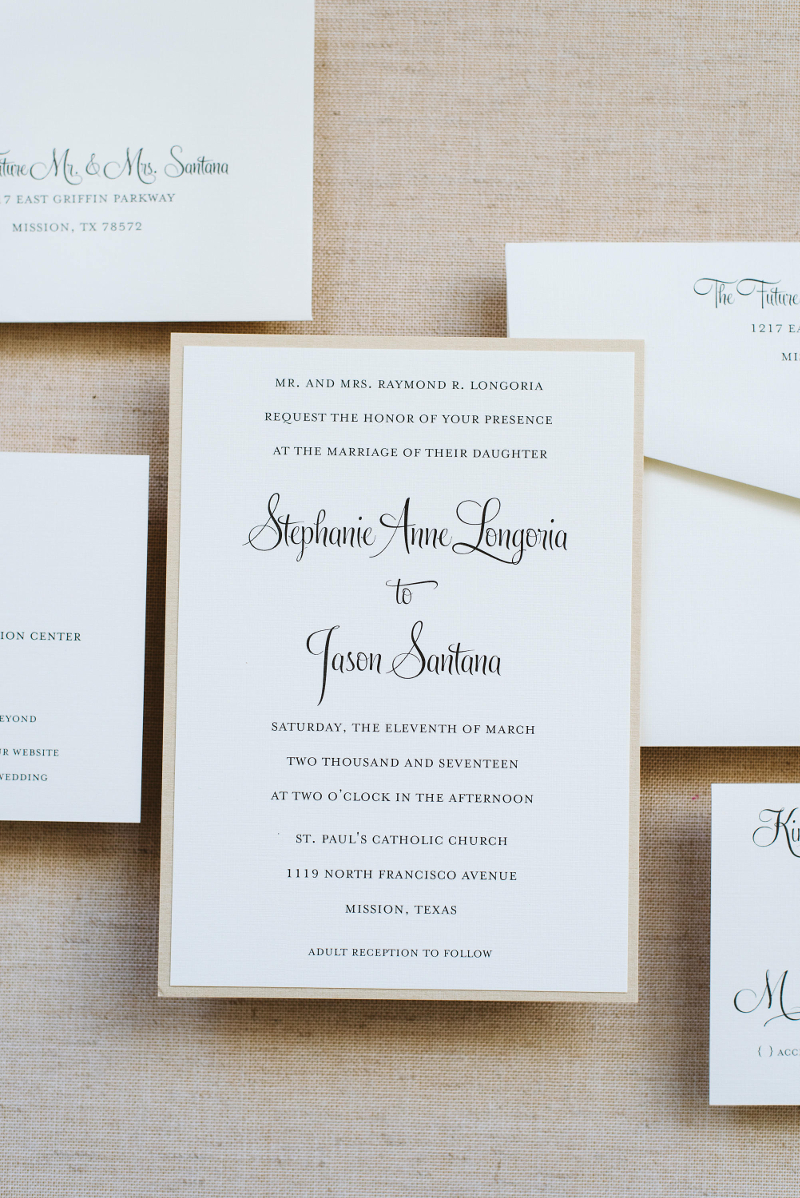 Mr. & Mrs. Santana
7 EAST GRIFFIN PARKWAY
MISSION, TX 78572
The Future
1217
MR. AND MRS. RAYMOND R. LONGORIA
REQUEST THE HONOR OF YOUR PRESENCE
AT THE MARRIAGE OF THEIR DAUGHTER
Stephanie Anne Longoria
to
Jason Santana
SATURDAY, THE ELEVENTH OF MARCH
TWO THOUSAND AND SEVENTEEN
AT TWO O'CLOCK IN THE AFTERNOON
ST. PAUL'S CATHOLIC CHURCH
1119 NORTH FRANCISCO AVENUE
MISSION, TEXAS
ADULT RECEPTION TO FOLLOW
ION CENTER
EYOND
UR WEBSITE
WEDDING
Kin
M
( ) ACC